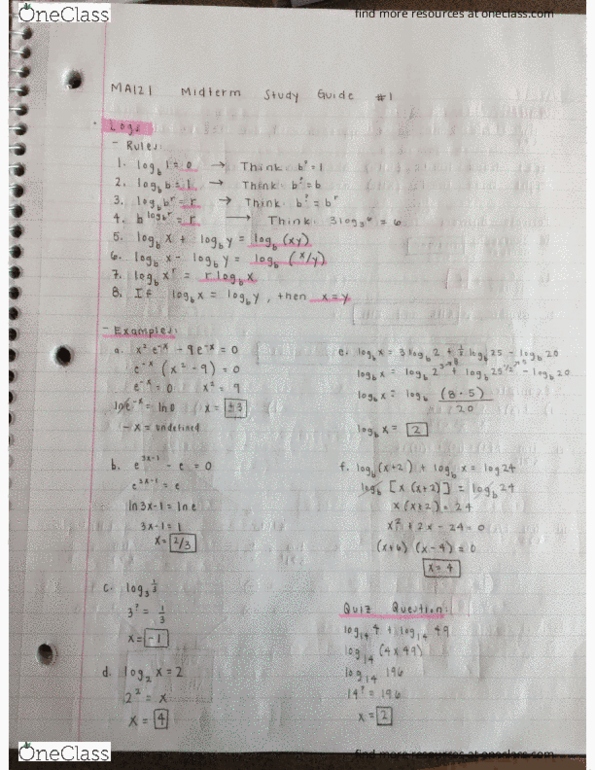 OneClass
find more resources at oneclass.com
MA121 Midterm Study Guide #1
Logs
- Rules:
1. log_b 1 = 0 → Think: b^? = 1
2. log_b b = 1 → Think: b^? = b
3. log_b b^r = r → Think: b^? = b^r
4. b^(log_b r) = r → Think: 3^(log_3 6) = 6
5. log_b x + log_b y = log_b (xy)
6. log_b x - log_b y = log_b (x/y)
7. log_b x^r = r log_b x
8. If log_b x = log_b y, then x = y
- Examples:
a. x² e^-x - 9e^-x = 0
e^-x (x² - 9) = 0
e^-x = 0 x² = 9
ln e^-x = ln 0 x = ±3
- x = undefined
b. e^(3x-1) - e = 0
e^(3x-1) = e
ln 3x-1 = ln e
3x-1 = 1
x = 2/3
c. log_3 1/3
3^? = 1/3
x = -1
d. log_2 x = 2
2^2 = x
x = 4
e. log_b x = 3 log_b 2 + 1/2 log_b 25 - log_b 20
log_b x = log_b 2^3 + log_b 25^1/2 - log_b 20
log_b x = log_b (8 · 5)
20
log_b x = 2
f. log_b (x+2) + log_b x = log 24
log_b [x(x+2)] = log_b 24
x(x+2) = 24
x² + 2x - 24 = 0
(x+6) (x-4) = 0
x = 4
Quiz Question:
log_14 4 + log_14 49
log_14 (4x49)
log_14 196
14^? = 196
x = 2
OneClass
find more resources at oneclass.com